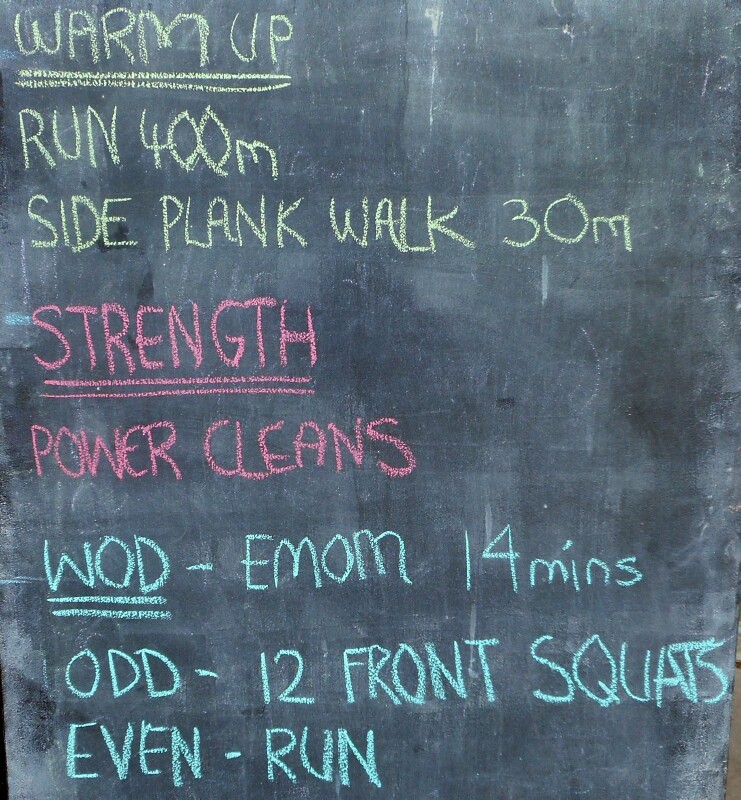 WARM UP
RUN 400m
SIDE PLANK WALK 30m
STRENGTH
POWER CLEANS
WOD - EMOM 14 mins
ODD - 12 FRONT SQUATS
EVEN - RUN